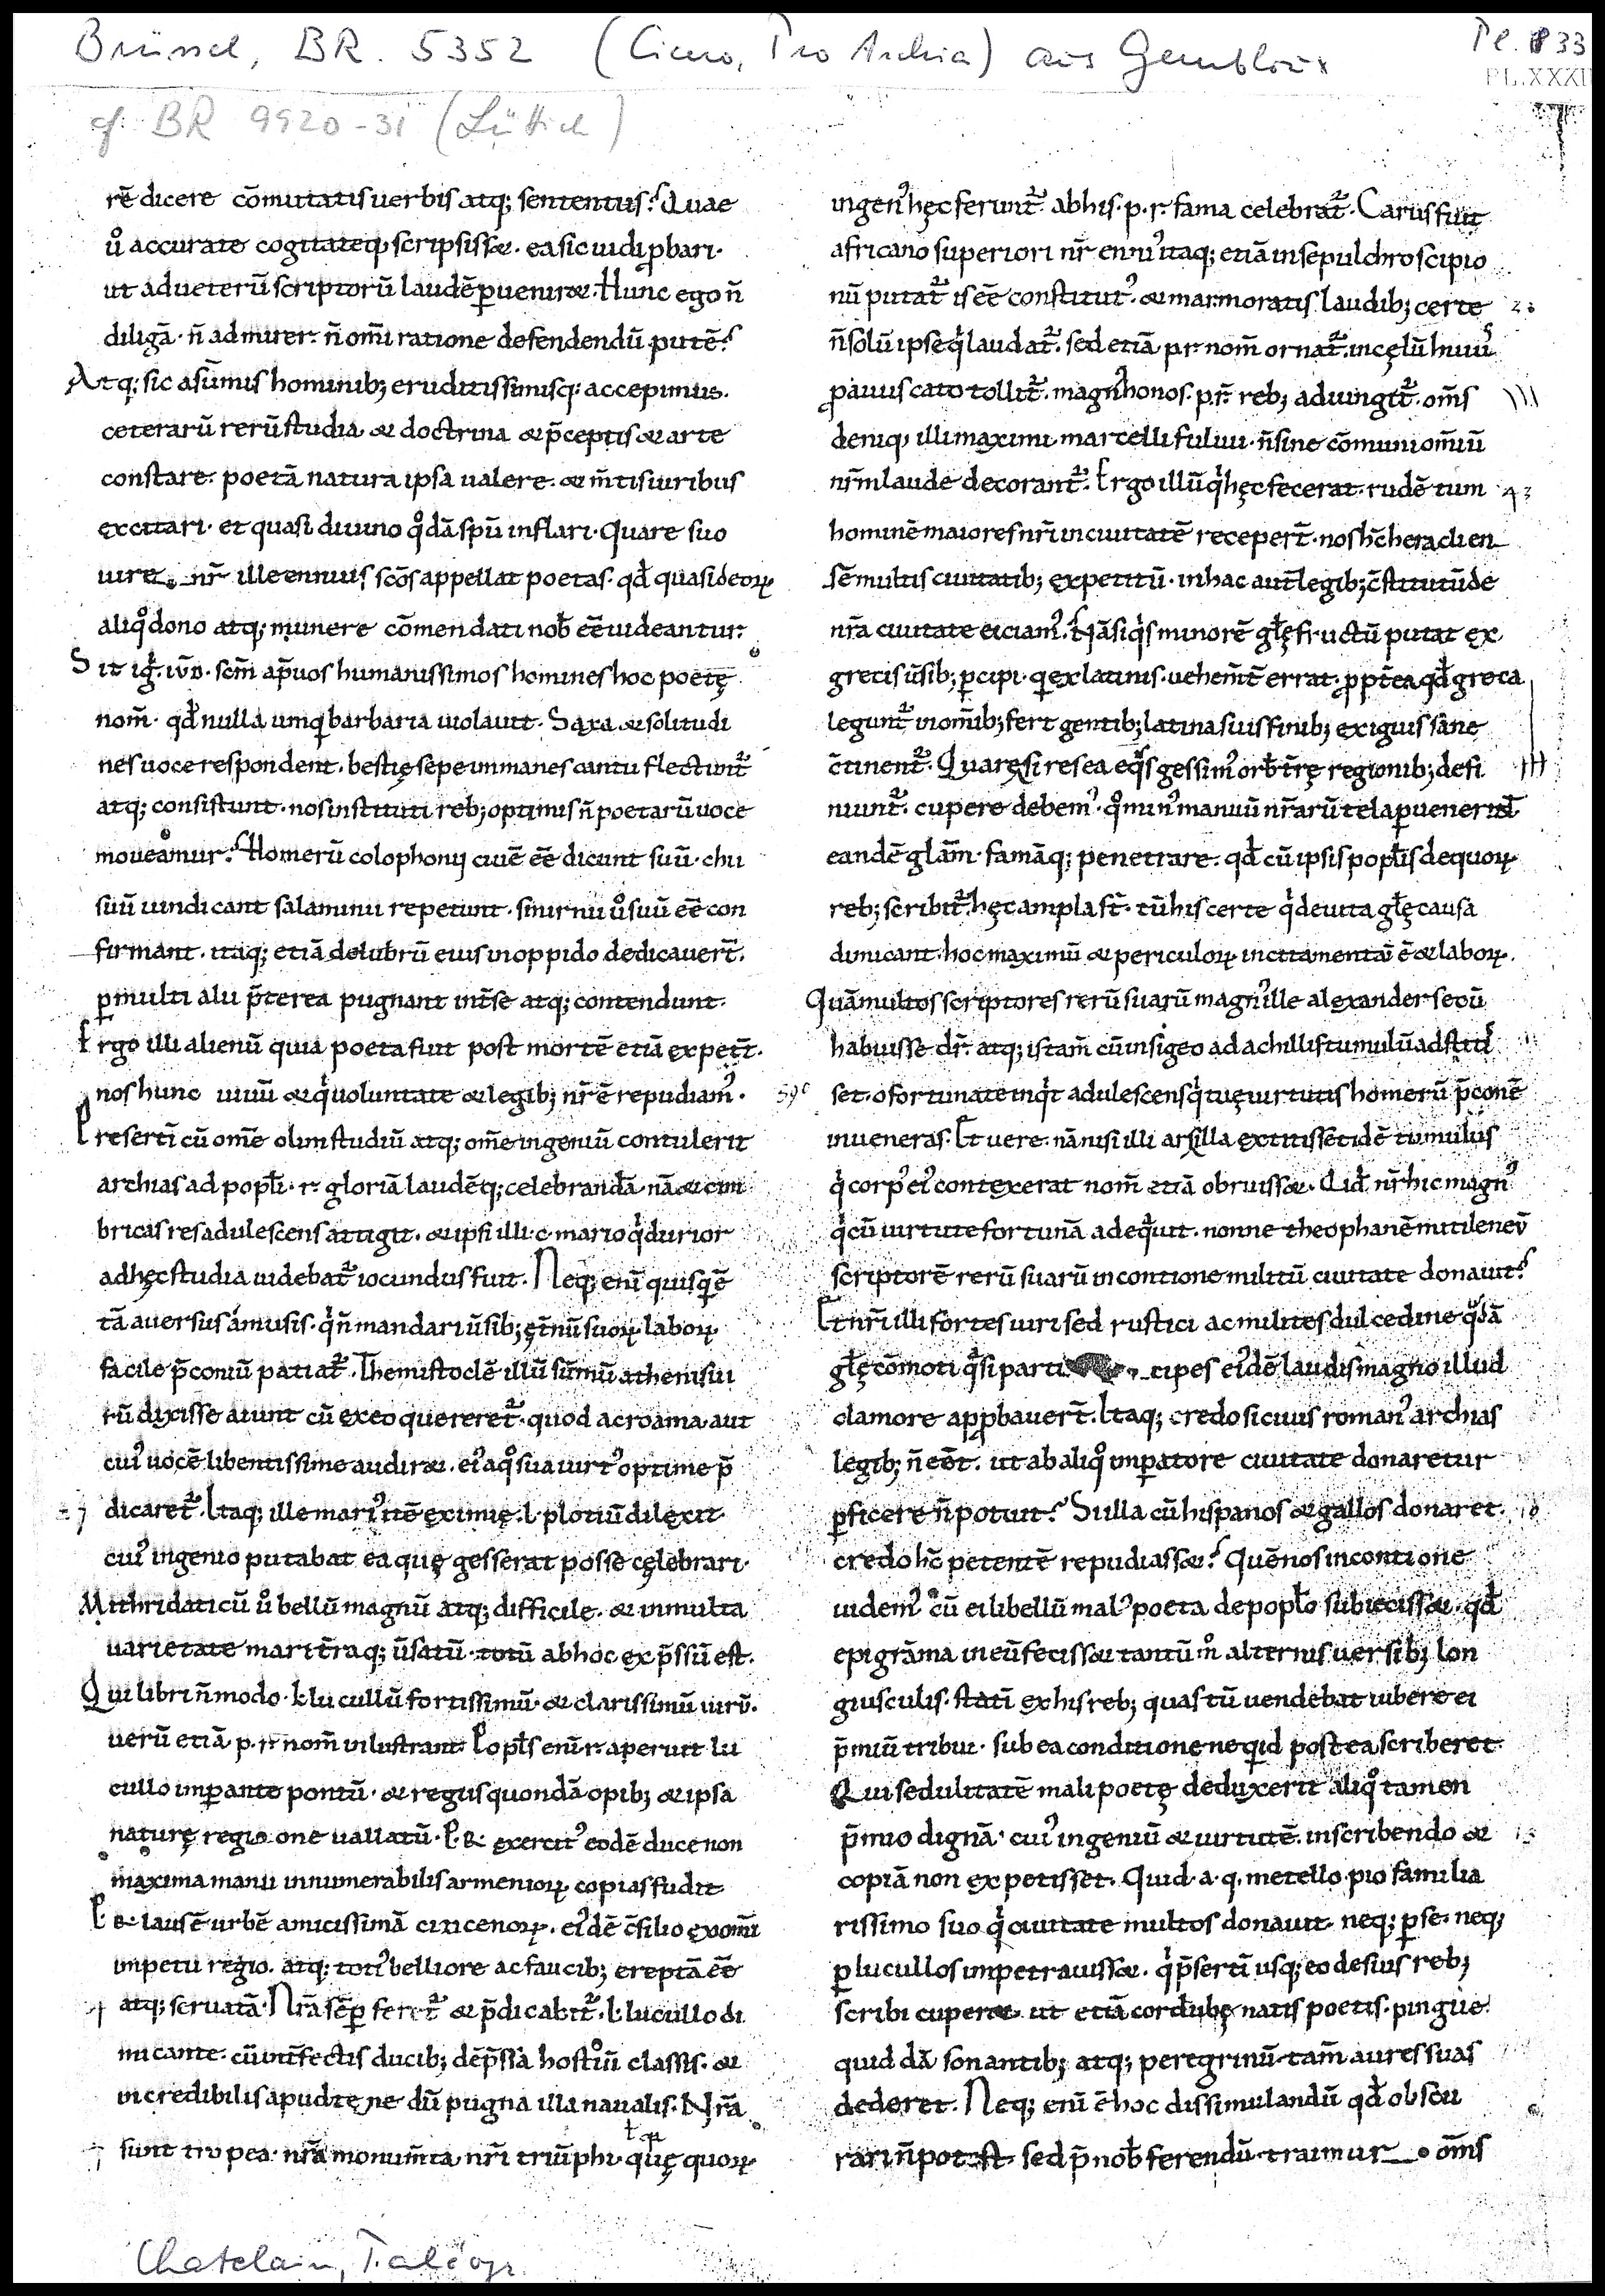 Brüssel, BR. 5352 (Cicero, Pro Archia) aus Gembloux
Pl. 33
PL. XXXII
cf. BR 9920-31 (Lüttich)
rē dicere cōmutatis uerbis atq; sententiis? Quae
uº accurate cogitateq; scripsisset. ea sic uidi ꝓbari.
ut ad ueterū scriptorū laudē ꝑueniret. Hunc ego n̄
diligā. n̄ admirer. n̄ om̄i ratione defendendū putē?
Atq; sic a sūmis hominib; eruditissimisq; accepimus.
ceterarū rerū studia et doctrina et p̄ceptis et arte
constare. poetā natura ipsa ualere. et m̄tis uiribus
excitari. et quasi diuino qºdā sp̄u inflari. Quare suo
iure nr̄ ille ennius sc̄os appellat poetas. qđ quasi deoꝝ
aliqº dono atq; munere cōmendati nob̄ ēē uideantur.
Sit igͥ. iūd. sc̄m ap̄ uos humanissimos homines hoc poetę
nom̄. qđ nulla umq̄ barbaria uiolauit. Saxa et solitudi
nes uoce respondent. bestię sepe inmanes cantu flectunt᷑
atq; consistunt. nos instituti reb; optimis n̄ poetarū uoce
moueamur? Homerū colophonij ciuē ēē dicunt suū. chii
suū uindicant salaminii repetunt. smirnii uº suū ēē con
firmant. itaq; etiā delubrū eius in oppido dedicauer̄t.
ꝑmulti alii p̄terea pugnant int̄ se atq; contendunt.
Ergo illi alienū quia poeta fuit post mortē etiā expet̄t.
nos hunc uiuū et qͥ uoluntate et legib; nr̄ ē repudiamꝰ.
Presertī cū om̄e olim studiū atq; om̄e ingeniū contulerit
archias ad popłi. r. gloriā laudēq; celebrandā. nā et cim
bricas res adulescens attigit. et ipsi illi. c. mario qͥ durior
ad hęc studia uidebat᷑ iocundus fuit. Neq; enī quisq̄ ē
tā auersus a musis. qͥ n̄ mandari ūsib; ęt̄nū suoꝝ laboꝝ
facile p̄coniū patiat᷑. Themistoclē illū sūmū athenis ui
rū dixisse aiunt cū ex eo quereret᷑. quod acroama aut
cuiꝰ uocē libentissime audiret. eiꝰ a qº sua uirtꝰ optime p̄
dicaret᷑. Itaq; ille mariꝰ itē eximię. l. plotiū dilexit
cuiꝰ ingenio putabat ea quę gesserat posse cęlebrari.
Mithridaticū uº bellū magnū atq; difficile. et in multa
uarietate mari t̄raq; ūsatū. totū ab hoc exp̄ssū est.
Qui libri n̄ modo. l. lucullū fortissimū. et clarissimū uirū.
uerū etiā p. r. nom̄ inlustrant. Popłs enī. r. aperuit lu
cullo imꝑante pontū. et regiis quondā opib; et ipsa
naturę regione uallatū. P. R. exercitꝰ eodē duce non
maxima manu innumerabilis armenioꝝ copias fudit
P. R. laus ē urbē amicissimā cizicenoꝝ. eiꝰdē c̄silio ex om̄i
impetu regio. atq; totiꝰ belli ore ac faucib; ereptā ēē
atq; seruatā. Nr̄a sēꝑ feret᷑ et p̄dicabit᷑. l. lucullo di
micante. cū int̄fectis ducib; dep̄ssa hostiū classis. et
incredibilis apud tęnedū pugna illa naualis. Nr̄a
sunt tropea. nr̄a monum̄ta. nr̄i triūphi. quę quoꝝ
ingeniꝰ hęc ferunt᷑. ab his. p. r. fama celebrat᷑. Carus fuit
africano superiori nr̄ enniꝰ itaq; etiā in sepulchro scipio
nū putat᷑ is ēē constitutꝰ. et marmoratis laudib; certe
n̄ solū ipse qͥ laudat᷑. sed etiā p. r. nom̄ ornat᷑. in cęlū huiꝰ
proauus cato tollit᷑. magnꝰ honos. p. r. reb; adiungit᷑. om̄s
deniq; illi maximi. marcelli fuluii. n̄ sine cōmuni om̄iū
nr̄m laude decorant᷑. Ergo illū qͥ hęc fecerat. rudē tum
hominē maiores nr̄i in ciuitatē receper̄t. nos hc̄ heraclien
sē multis ciuitatib; expetitū. in hac aut̄ legib; c̄stitutū de
nr̄a ciuitate eiciamꝰ. Nā siqͥs minorē głę fructū putat ex
grecis ūsib; ꝑcipi. q̄ ex latinis. uehem̄t̄ errat. ꝓpt̄ea qđ greca
legunt᷑ in om̄ib; fert gentib; latina suis finib; exiguis sane
c̄tinent᷑. Quarę si res eę qͣs gessimꝰ orb̄ t̄rę regionib; defi
niunt᷑. cupere debemꝰ. qº minꝰ manuū nr̄arū tela ꝑuenerint
eandē glām. famāq; penetrare. qđ cū ipsis popłis de quoꝝ
reb; scribit᷑. hęc ampla st̄. tū his certe qͥ de uita głę causa
dimicant. hoc maximū et periculoꝝ incitamentū ē et laboꝝ.
Quā multos scriptores rerū suarū magnꝰ ille alexander secū
habuisse dr̄. atq; is tam̄ cū in sigeo ad achillis tumulū adstitis
set. o fortunate inqͥt adulescens qͥ tuę uirtutis homerū p̄conē
inueneras. Et uere. nā nisi illi ars illa extitisset idē tumulus
qͥ corpꝰ eiꝰ contexerat nom̄ etiā obruisset. Qͥd nr̄ hic magnꝰ
qͥ cū uirtute fortunā adeqͣuit. nonne theophanē mitileneū
scriptorē rerū suarū in contione militū ciuitate donauit?
Et nr̄i illi fortes uiri sed rustici ac milites dulcedine qͣdā
głę cōmoti qͣsi parti cipes eiꝰdē laudis magno illud
clamore apꝓbauer̄t. Itaq; credo si ciuis romanꝰ archias
legib; n̄ eēt. ut ab aliqº imꝑatore ciuitate donaretur
ꝑficere n̄ potuit? Sulla cū hispanos et gallos donaret.
credo hc̄ petentē repudiasset? Quē nos in contione
uidemꝰ cū ei libellū malꝰ poeta de popło subiecisset. qđ
epigrāma in eū fecisset tantū mº alternis uersib; lon
giusculis. statī ex his reb; quas tū uendebat iubere ei
p̄miū tribui. sub ea conditione ne qͥd postea scriberet.
Qui sedulitatē mali poetę deduxerit aliqº tamen
p̄mio dignā. cuiꝰ ingeniū et uirtutē. in scribendo et
copiā non expetisset. Quid. a. q. metello. pio familia
rissimo suo qͥ ciuitate multos donauit. neq; ꝑ se. neq;
ꝑ lucullos impetrauisset. qͥ p̄sertī usq; eo de suis reb;
scribi cuperet. ut etiā cordubę natis poetis. pingue
quiddā sonantib; atq; peregrinū. tam̄ aures suas
dederet. Neq; enī ē hoc dissimulandū qđ obscu
rari n̄ potest. sed p̄ nob̄ ferendū. traimur om̄s
Chatelain, Paléogr.